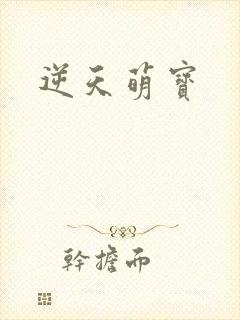 逆天萌寶
幹擔而